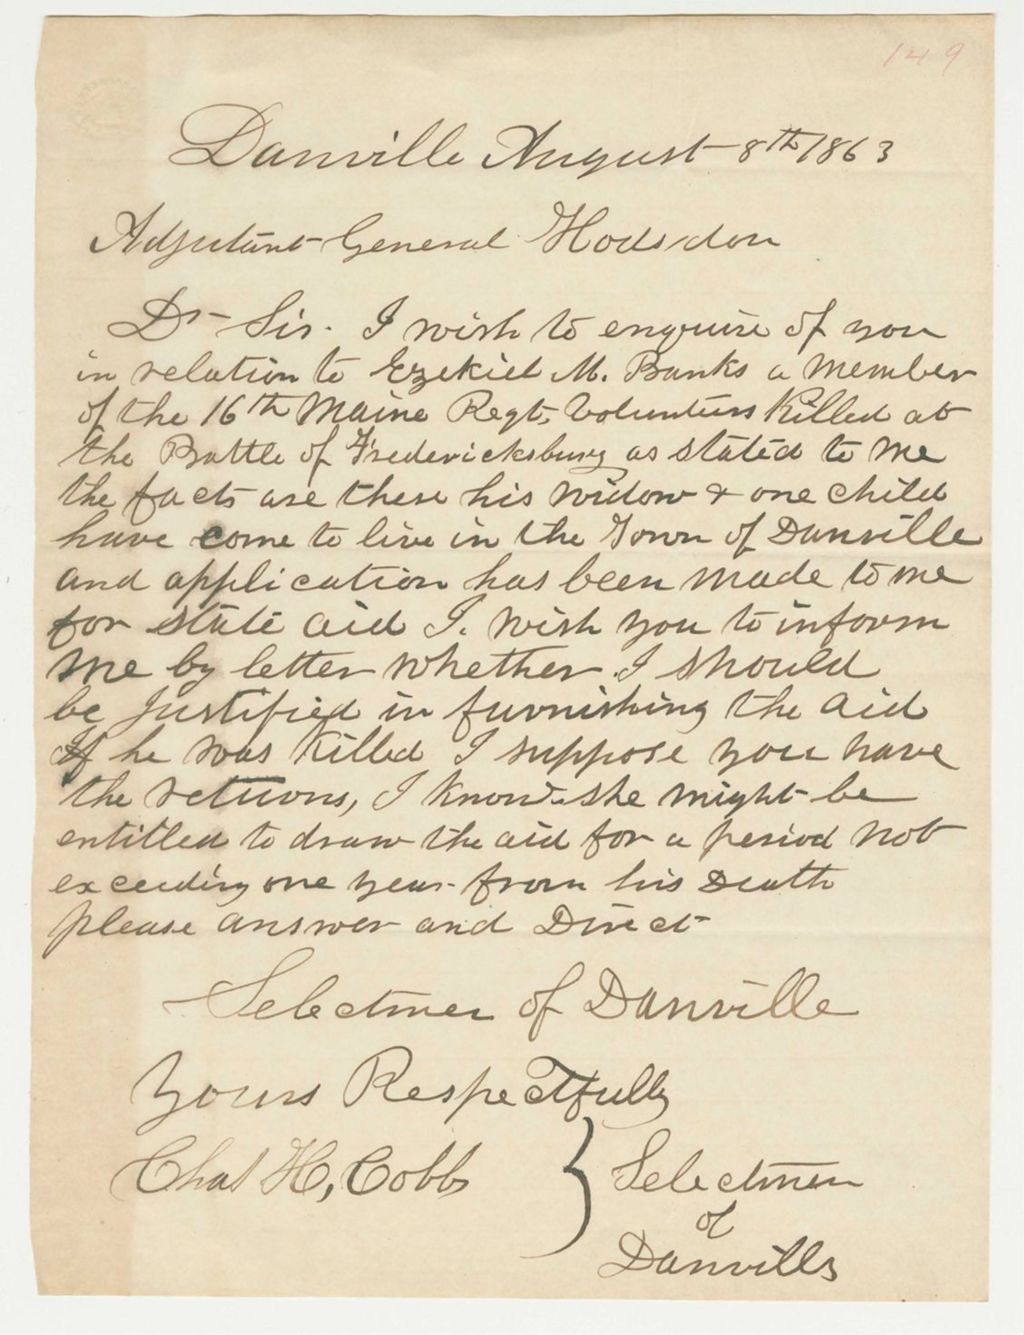 149
Danville August 8th 1863
Adjutant General Hodsdon
Dr Sir. I wish to enquire of you
in relation to Ezekiel M. Banks a member
of the 16th Maine Regt, Volunteers Killed at
the Battle of Fredericksburg as stated to me
the facts are these his widow & one child
have come to live in the Town of Danville
and application has been made to me
for State aid I. wish you to inform
me by letter whether I should
be Justified in furnishing the aid
If he was Killed I suppose you have
the returns, I know she might be
entitled to draw the aid for a period not
exceeding one year from his Death
please answer and Direct
Selectmen of Danville
Yours Respectfully
Chas H, Cobb } Selectmen
of
Danville